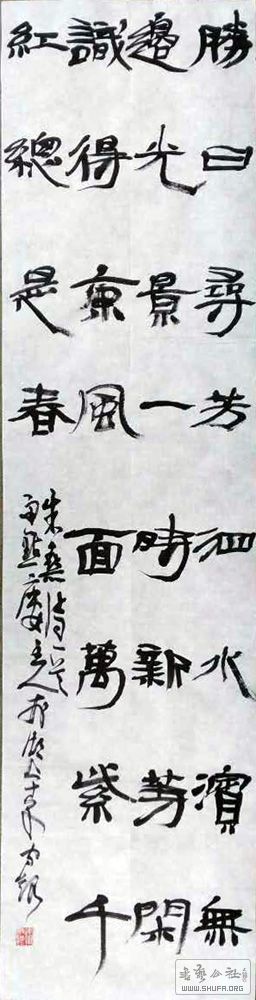 勝日尋芳泗水濱無
邊光景一時新等閑
識得東風面萬紫千
紅總是春
朱熹詩一首
主人
書藝公社
WWW.SHUFA.ORG